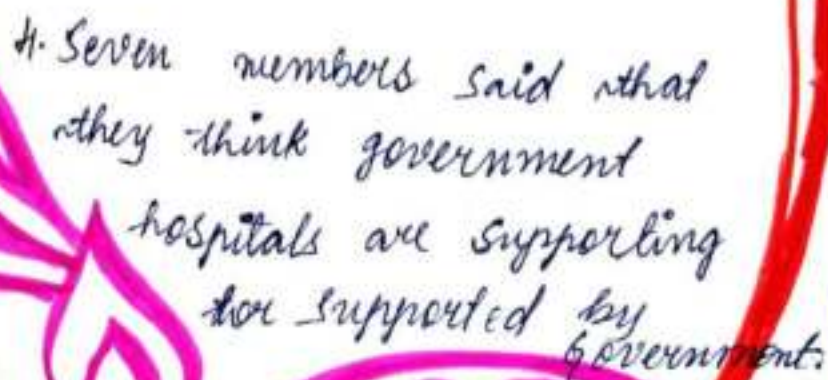 4. Seven members said that
they think government
hospitals are supporting
for supported by
Government.